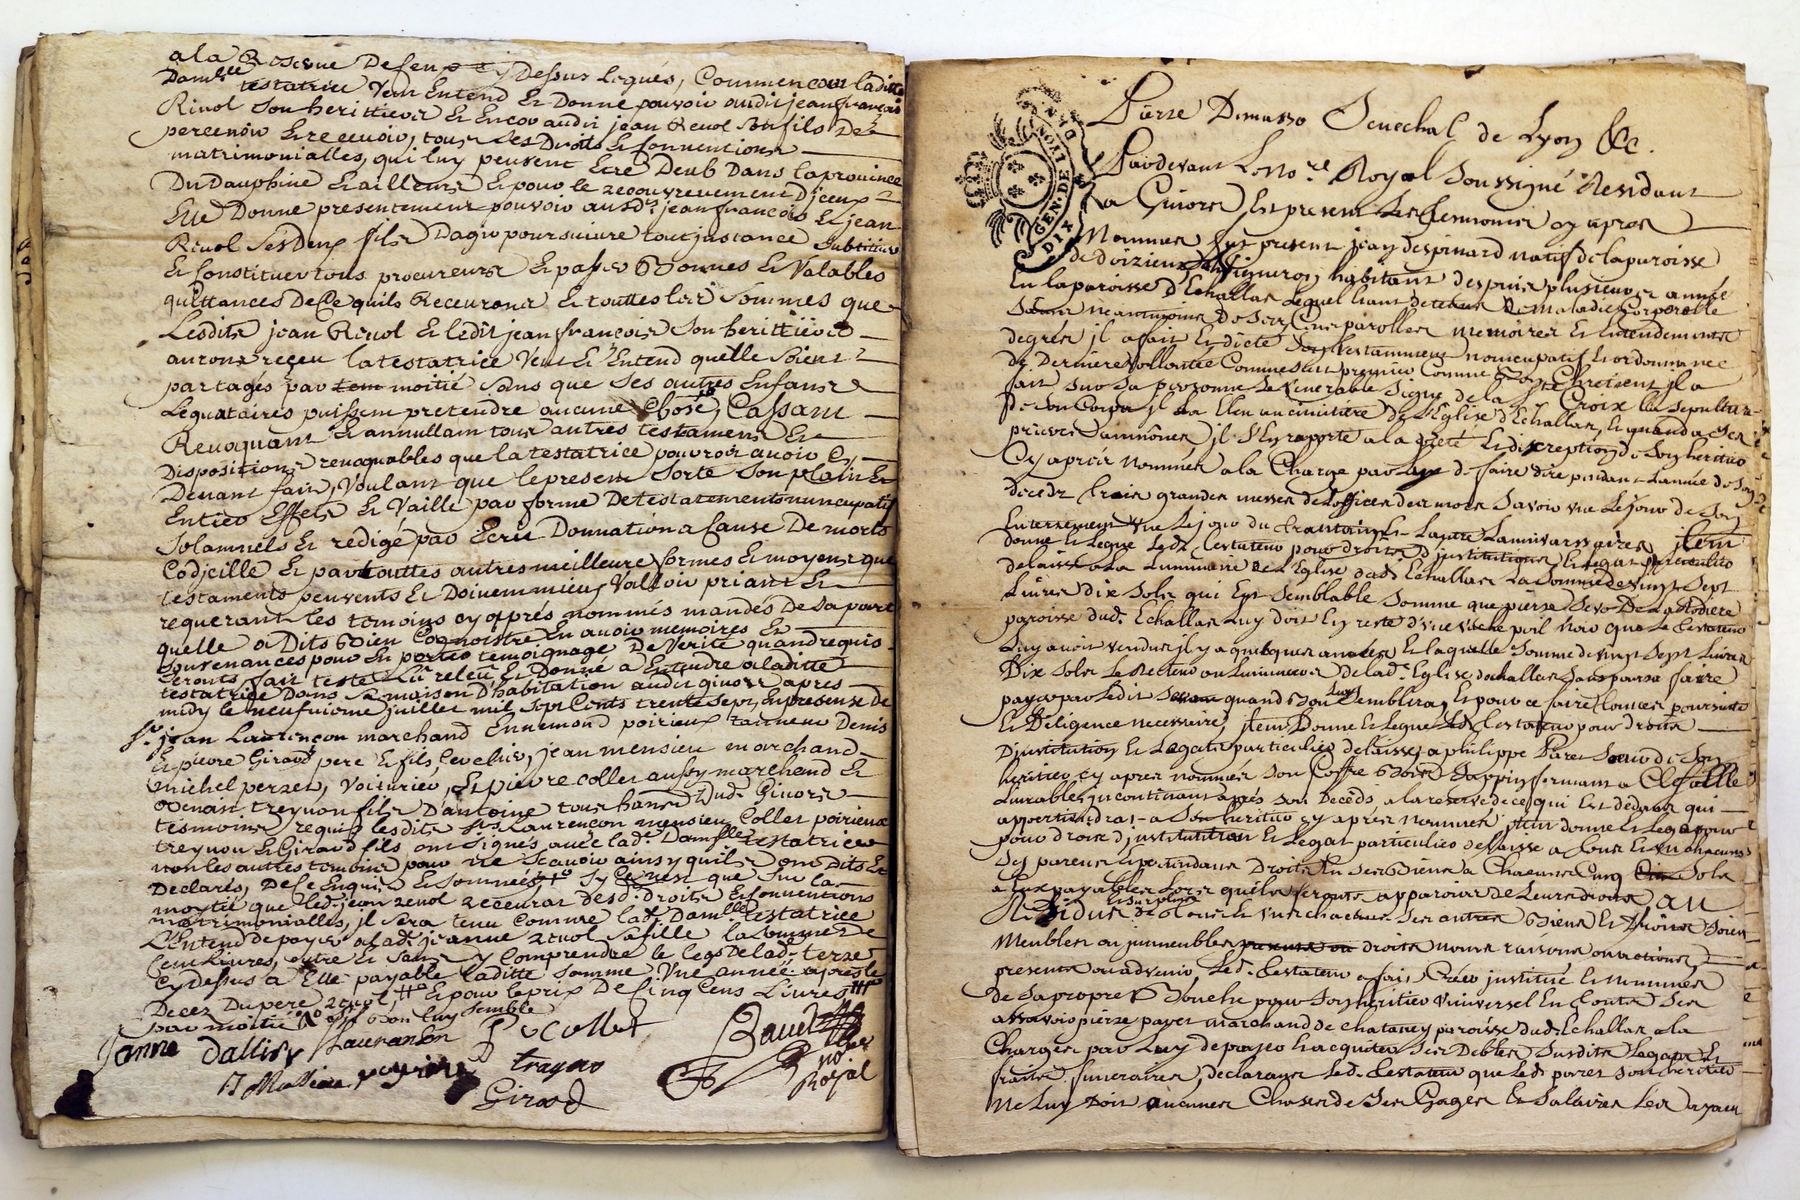 a la Reserve De ceux cy dessus legués, Comme encor ladite
Damlle testatrice Veut Entend Et Donne pouvoir audit jean françois
Revol son herittier Et Encor audit jean Revol son fils De
percevoir Et recevoir, tous Les Droits Et Conventions
matrimonialles, qui luy peuvent Etre Deub Dans la province
Du Dauphiné Et ailleurs Et pour le recouvrement D'jceux
Elle Donne presentement pouvoir ausdts jean françois Et jean
Revol ses Deux fils D'agir poursuivre tout jnstance substituer
Et Constituer tous procureurs Et passer Bonnes Et Valables
quittances De Ce quils Recevront Et touttes les sommes que
Lesdits jean Revol Et ledit jean françois son herittier
auront reçeu la testatrice Veut Et Entend quelle soient
partagés par moitié sans que ses autres Enfans
Legataires puissent pretendre aucune Chose, Cassant
Revoquant Et annullant tous autres testamens Et
Dispositions revoquables que la testatrice pourroit avoir Cy
Devant fait, Voulant que le present sorte son plain Et
Entier Effets Et Vaille par forme De testatement nuncupatif
solamnels Et redigé par Ecrit Donnation a Cause De morts
Codjcille Et par touttes autres meilleure formes Et moyens que
testaments peuvents Et Doivent mieux Valloir priant Et
requerant les temoins cy après nommés mandés De sa part
quelle a Dits Bien Cognoistre En avoir memoires Et
souvenances pour En porter temoignage De Verité quand requis
seronts, fait Leu releu Et Donné a Entendre a laditte
testatrice Dans sa maison D'habitation audit givors après
midy le neufvieme juillet mil sept Cents trente sept, En presense de
sr jean Laurençon marchand Ennemond poirieux Denis
Et pierre Giraud pere Et fils, jean mensieu marchand
michel perzet, Voiturier, Et pierre collet aussy marchend Et
Benoist treynon fils D'antoine tous habitants dud. Givors
tesmoins requis lesdits srs Laurençon mensieu Collet poirieux
treynon Et Giraud fils ont signés avec lad. Damlle testatrice
non les autres temoins pour ne scavoir ainsy quils ont Dits Et
Declarés, De Ce Enquis Et sommés sy Ce n'est que sur la
moytié que led. jean revol recevrat desd. Droits Et Conventions
matrimonialles, jl sera tenu Comme lad. Damlle testatrice
L'Entend de payer a lad. jeanne revol sa fille la somme de
Cent livres, outre Et sans y Comprendre le legs de lad. terre
Cy dessus a Elle payable laditte somme Une année après le
Decez Du pere revol Et pour le prix De Cinq Cens Livres
par moitié sy bon luy semble
janne Dallier Lauranson P Collet Baud
J Mensieu poyrieu trayno nore
Giroud Royal
Pierre Dumasso Senechal de Lyon &c.
GEN. DE LYON
DIX DEN.
Pardevant Le nore Royal soussigné Residant
a Givors, Et present Les temoins cy après
Nommés fut present jean despinard natif de la paroisse
de doizieux Vigneron habitant despuis plusieurs année
En la paroisse d'Echallas Lequel Etant detenus De maladie Corporelle
neantmoins De ses Cinq parolles memoires Et Entendements
degrés jl a fait Et dicté son testamment noncupatif Et ordonnance
de Derniere Vollontée Comme sait premier Comme bon Chretient jl a
fait sur sa personne Le Venerable signe de la Ste Croix la sepulture
De son Corps jl La Eleu au cimitiere De L'Eglise d'Echallas, Et quand a ses
prieres & aumônes jl s'En raporte a la pieté Et discreption de son heritier
Cy après Nommés a la Charge par Luy de faire dire pendant Lannée de son
decedz trois grandes messes de L'office des morts savoir une Le jour de son
Enterrement une Le jour du trantain Et L'autre L'annivarsaire jtem
donne Et Legue Ledt testateur pour droits d'jnstitutions Et legat particulier
delaisse a La Luminaire De L'Eglise dud. Echallas La somme de vingt sept
Livres Dix sols qui Est semblable somme que pierre sevo De La Rodiere
paroisse dud. Echallas Luy doit En reste d'une vache poil noir que Le testateur
Luy avoit vendue jl y a quelques années Et laquelle somme de vingt sept Livres
Dix sols Le Recteur ou Luminier de lad. Eglise dechallas faire
payer par Ledit sevo quand Bon Luy semblera, Et pour ce faire Donner poursuitte
Et Diligence necessaire, jtem Donne Et Legue Led. testateur pour droits
D'jnstitution Et Legat particulier delaisse a philippe Pare de son
heritier cy apres nommés son Coffre Bois sappin fermant a Clef
Livrable jncontinant après son Decéds, a la reserve de ce qui Est dedans qui
appertiendrat a son heritier cy après Nommés jtem donne Et Lega pour
pour droit d'jnstitution Et Legat particulier delaisse a tous Et un chacuns
ses parens Et pretendans Droits En ses Biens a Chacuns cinq sols
a Eux payables Lors quils seronts apparoir de Leurs droits au
Residus Et surplus De tous Et uns chacuns ses autres Biens Et Choses soient
Meubles ou jmmeubles droits noms raisons ou actions
presents ou advenir, Led. testateur a fait, Créer jnstitué Et nommés
de sa propre Bouche pour son heritier Universel En touts ses
assavoir pierre payet marchand de chataney paroisse dud. Echallas a la
Charges par Luy de payer Et acquiter ses Debtes susdits Legats Et
fraits funeraires, declarant Led. testateur que led. payet son heritier
Ne Luy Doit aucunes Choses de ses Gages Et salaires Les ayant